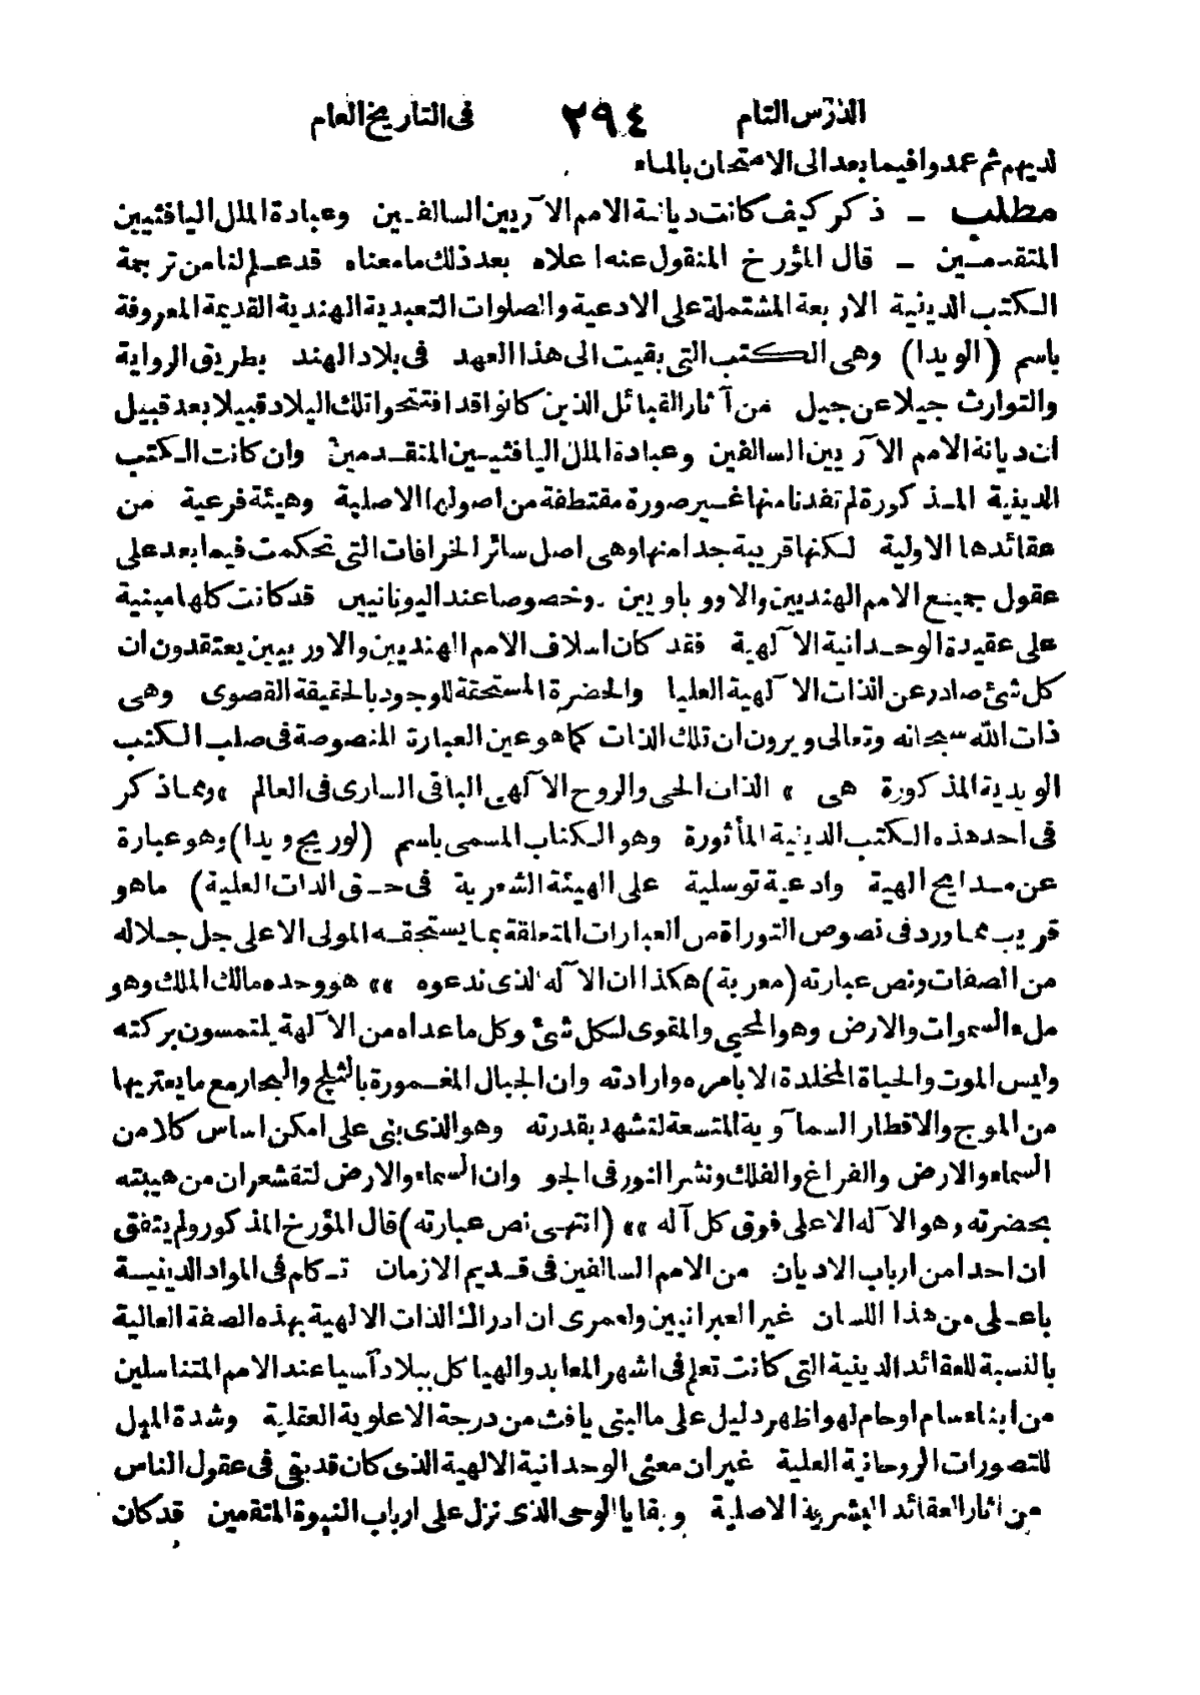 الدرس التام ٢٩٤ فى التاريخ العام
لديهم ثم عمدوا فيما بعد الى الامتحان بالماء
مطلب ـ ذكر كيف كانت ديانة الامم الآريين السالفين وعبادة الملل اليافثيين
المتقدمين ـ قال المؤرخ المنقول عنه اعلاه بعد ذلك ما معناه قد علم لنا من ترجمة
الكتب الدينية الاربعة المشتملة على الادعية والصلوات التعبدية الهندية القديمة المعروفة
باسم (الويدا) وهى الكتب التى بقيت الى هذا العهد فى بلاد الهند بطريق الرواية
والتوارث جيلا عن جيل من آثار القبائل الذين كانوا قد افتتحوا تلك البلاد قبيلا بعد قبيل
ان ديانة الامم الآريين السالفين وعبادة الملل اليافثيين المتقدمين وان كانت الكتب
الدينية المذكورة لم تفدنا منها غير صورة مقتطفة من اصولها الاصلية وهيئة فرعية من
عقائدها الاولية لكنها قريبة جدا منها وهى اصل سائر الخرافات التى تحكمت فيما بعد على
عقول جميع الامم الهنديين والاوروباويين وخصوصا عند اليونانيين قد كانت كلها مبنية
على عقيدة الوحدانية الآلهية فقد كان اسلاف الامم الهنديين والاوربيين يعتقدون ان
كل شئ صادر عن الذات الآلهية العليا والحضرة المستحقة للوجود بالحقيقة القصوى وهى
ذات الله سبحانه وتعالى ويرون ان تلك الذات كما هو عين العبارة المنصوصة فى صلب الكتب
الويدية المذكورة هى » الذات الحى والروح الآلهى الباقى السارى فى العالم » ومما ذكر
فى احد هذه الكتب الدينية المأثورة وهو الكتاب المسمى باسم (لوريج ويدا) وهو عبارة
عن مدايح الهية وادعية توسلية على الهيئة الشعرية فى حق الذات العلية) ماهو
قريب مما ورد فى نصوص التوراة من العبارات المتعلقة بما يستحقه المولى الاعلى جل جلاله
من الصفات ونص عبارته (معربة) هكذا ان الآله الذى ندعوه »» هو وحده مالك الملك وهو
ملء السموات والارض وهو المحيى والمقوى لكل شئ وكل ماعداه من الآلهة يلتمسون بركته
وليس الموت والحياة المخلدة الا بامره وارادته وان الجبال المغمورة بالثلج والبحار مع ما يعتريها
من الموج والاقطار السمآوية المتسعة لتشهد بقدرته وهو الذى بنى على امكن اساس كلا من
السماء والارض والفراغ والفلك ونشر النور فى الجو وان السماء والارض لتقشعران من هيبته
بحضرته وهو الآله الاعلى فوق كل آله »» (انتهى نص عبارته) قال المؤرخ المذكور ولم يتفق
ان احدا من ارباب الاديان من الامم السالفين فى قديم الازمان تكلم فى المواد الدينية
باعلى من هذا اللسان غير العبرانيين ولعمرى ان ادراك الذات الالهية بهذه الصفة العالية
بالنسبة للعقائد الدينية التى كانت تعلم فى اشهر المعابد والهياكل ببلاد آسيا عند الامم المتناسلين
من ابناء سام او حام لهو اظهر دليل على ما لبنى يافث من درجة الاعلوية العقلية وشدة الميل
للتصورات الروحانية العلية غير ان معنى الوحدانية الالهية الذى كان قد بقى فى عقول الناس
من اثار العقائد البشرية الاصلية وبقايا الوحى الذى نزل على ارباب النبوة المتقمين قد كان